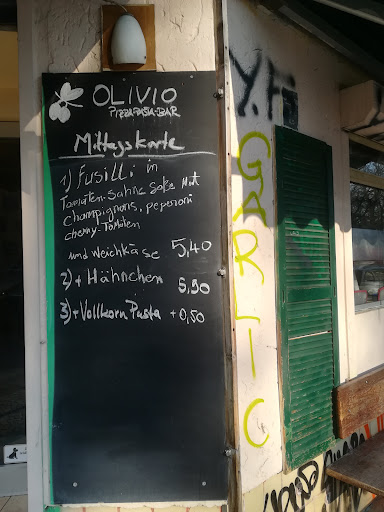 OLIVIO
PIZZA-PASTA-BAR
Mittagskarte
1) Fusilli in
Tomaten-Sahne Soße mit
Champignons, peperoni
cherry-Tomaten
und Weichkäse 5,40
2) + Hähnchen 5,90
3) + Vollkorn Pasta + 0,50
GARLIC